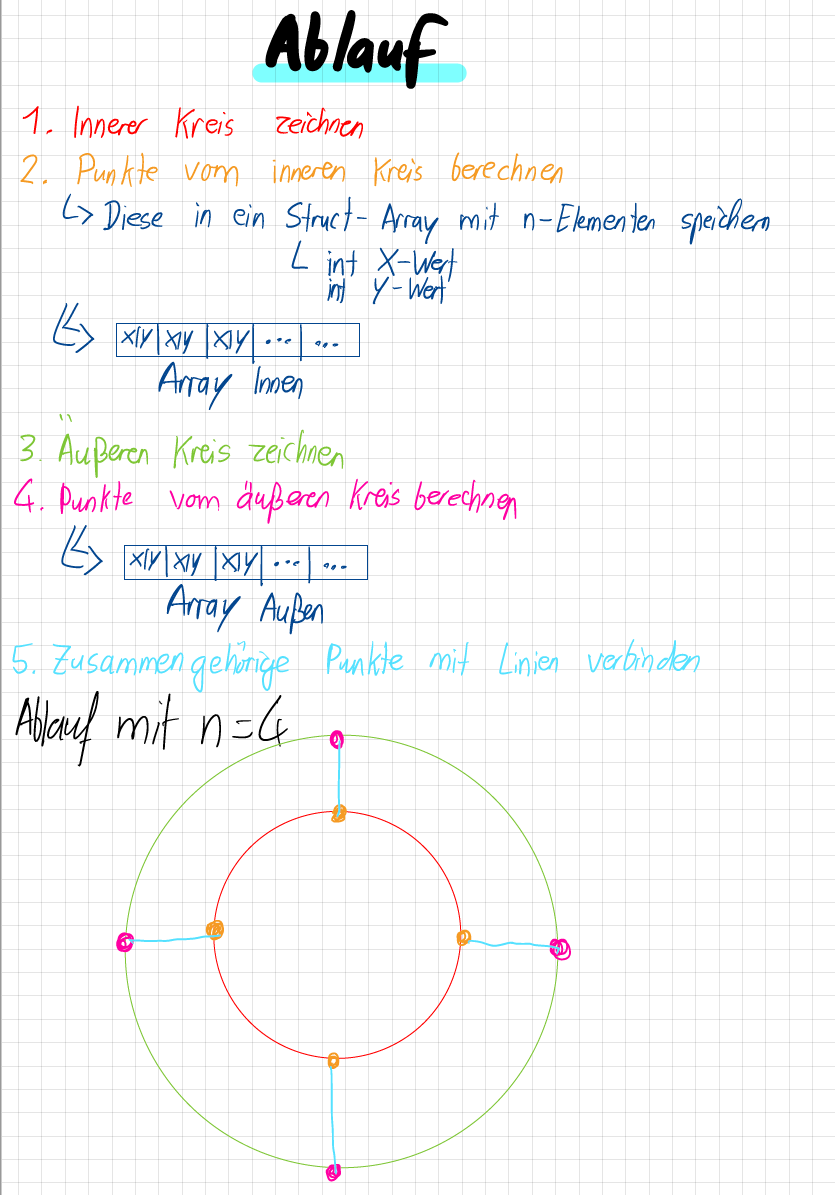 Ablauf
1. Innerer Kreis zeichnen
2. Punkte vom inneren Kreis berechnen
↳ Diese in ein Struct-Array mit n-Elementen speichern
int X-Wert
int Y-Wert
x|y | x|y | x|y | ... | ...
Array Innen
3. Äußeren Kreis zeichnen
4. Punkte vom äußeren Kreis berechnen
x|y | x|y | x|y | ... | ...
Array Außen
5. Zusammengehörige Punkte mit Linien verbinden
Ablauf mit n=4